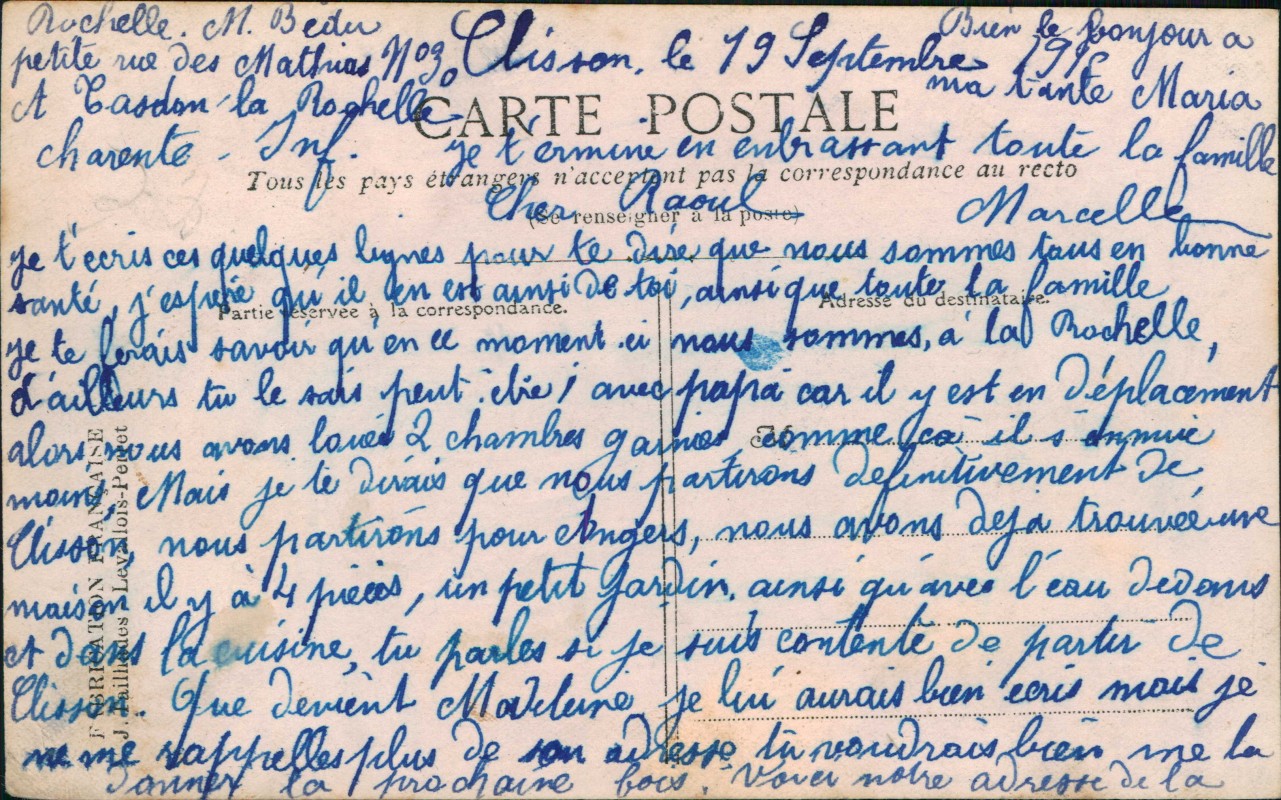 Clisson, le 19 Septembre
CARTE POSTALE
Tous les pays étrangers n'acceptent pas la correspondance au recto
(Se renseigner à la poste)
Partie réservée à la correspondance.
Adresse du destinataire.
FABRICATION FRANÇAISE
Levallois-Perret
M
Cher Raoul
je t'écris ces quelques lignes pour te dire que nous sommes tous en bonne
santé, j'espère qu'il en est ainsi de toi, ainsi que toute la famille
je te ferais savoir qu'en ce moment ci nous sommes, à la Rochelle,
d'ailleurs tu le sais peut être ! avec papa car il y est en déplacement
alors nous avons louée 2 chambres garnies comme ça il s'ennuie
moins, Mais je te dirais que nous partirons definitivement de
Clisson, nous partirons pour Angers, nous avons deja trouvée une
maison il y à 4 pièces, un petit jardin, ainsi qu'avec l'eau dedans
et dans la cuisine, tu parles si je suis contente de partir de
Clisson. Que devient Madeleine je lui aurais bien ecris mais je
ne me rappelles plus de son adresse tu voudrais bien me la
donner la prochaine fois. Voici notre adresse de la
Rochelle. M. Bedu
petite rue des Mathias N° 30
A Tasdon la Rochelle
Charente - Inf.
je t'ermine en enbrassant toute la famille
Marcelle
Bien le bonjour a
ma tante Maria